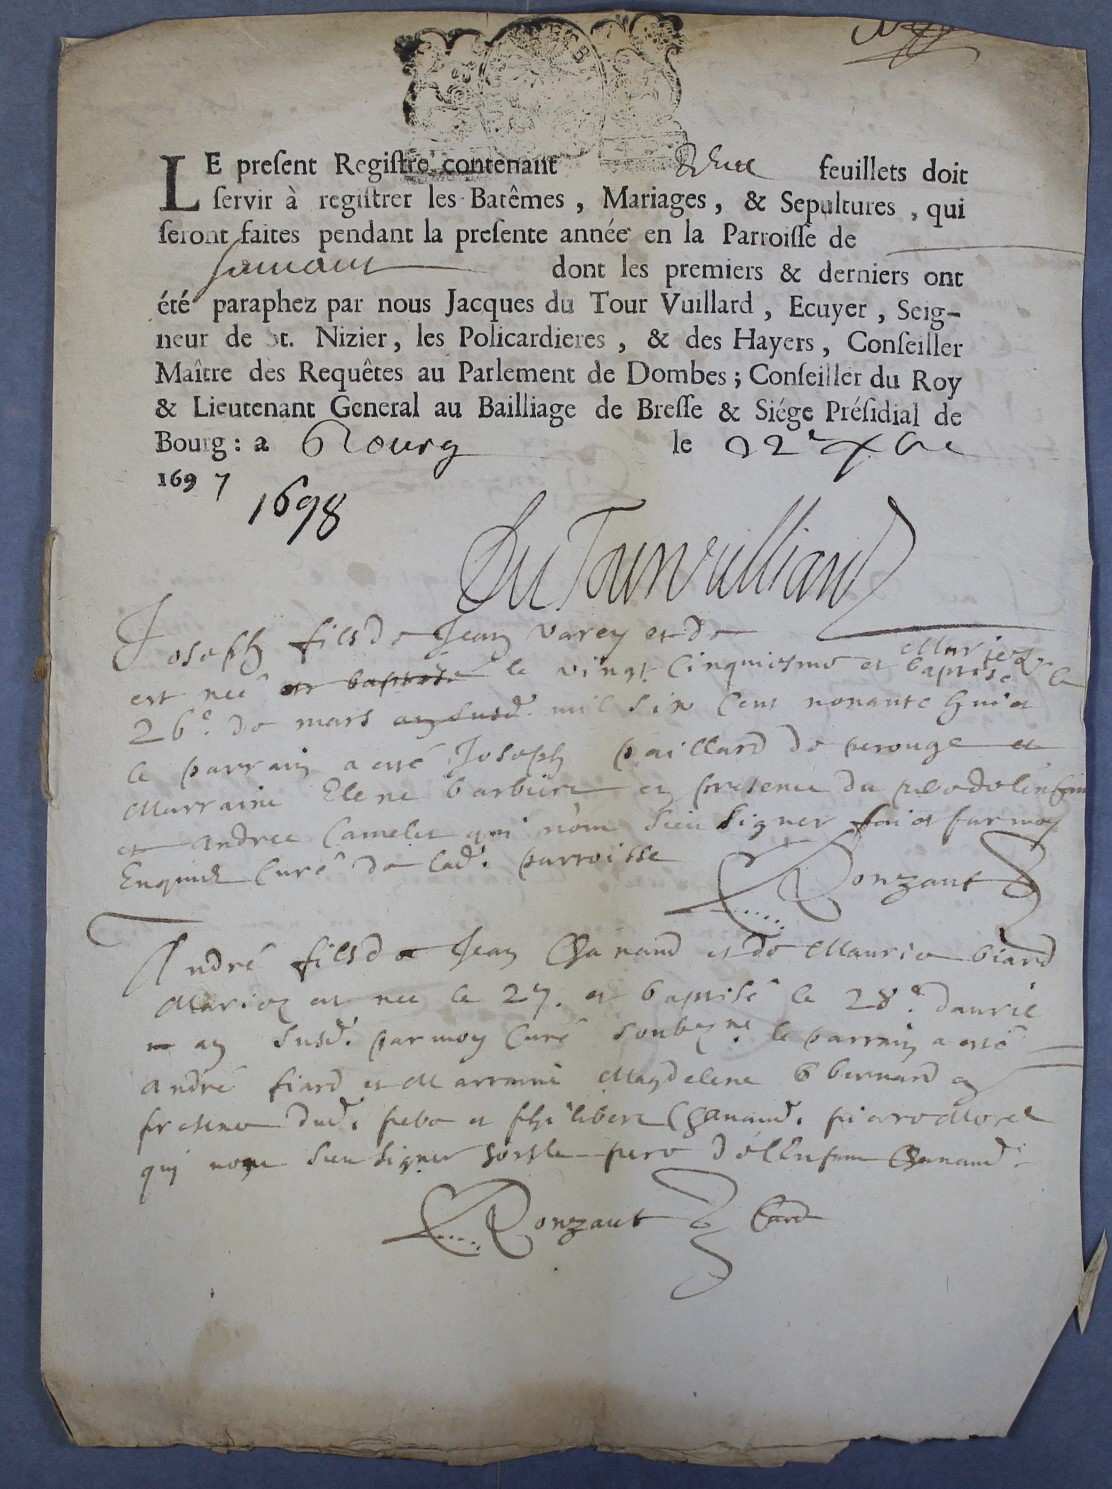 LE preſent Regiſtre contenant deux feuillets doit
ſervir à regiſtrer les Batêmes, Mariages, & Sepultures, qui
ſeront faites pendant la preſente année en la Parroiſſe de
dont les premiers & derniers ont
été paraphez par nous Jacques du Tour Vuillard, Ecuyer, Seig-
neur de St. Nizier, les Policardieres, & des Hayers, Conſeiller
Maître des Requêtes au Parlement de Dombes; Conſeiller du Roy
& Lieutenant General au Bailliage de Breſſe & Siége Préſidial de
Bourg: a Bourg le 22e xbre
1697
1698
Du Tour vuilliard
Joseph fils de Jean varey et de
est neé et baptisé le vingt cinquiesme et baptisé le
26e de mars an susd. mil six cens nonante huict
le parrain a esté Joseph paillard de perouge et
Marraine Elene barbiere en presence du
et Andree Camelet qui nom sceu signer faict par moy
curé de lad. parroisse
Ronzaut
André fils de Jean Chanaud et de Maurie biard
Mariez est nee le 27. et baptisé le 28e d'auril
an susd. par moy curé soubzne. le parrain a esté
André fiard et Marraine Magdelene bernard en
presence dud. pere et philibert Chanaud. pierre Morel
qui nom sceu signer le pere de Chanaud.
Ronzaut Curé